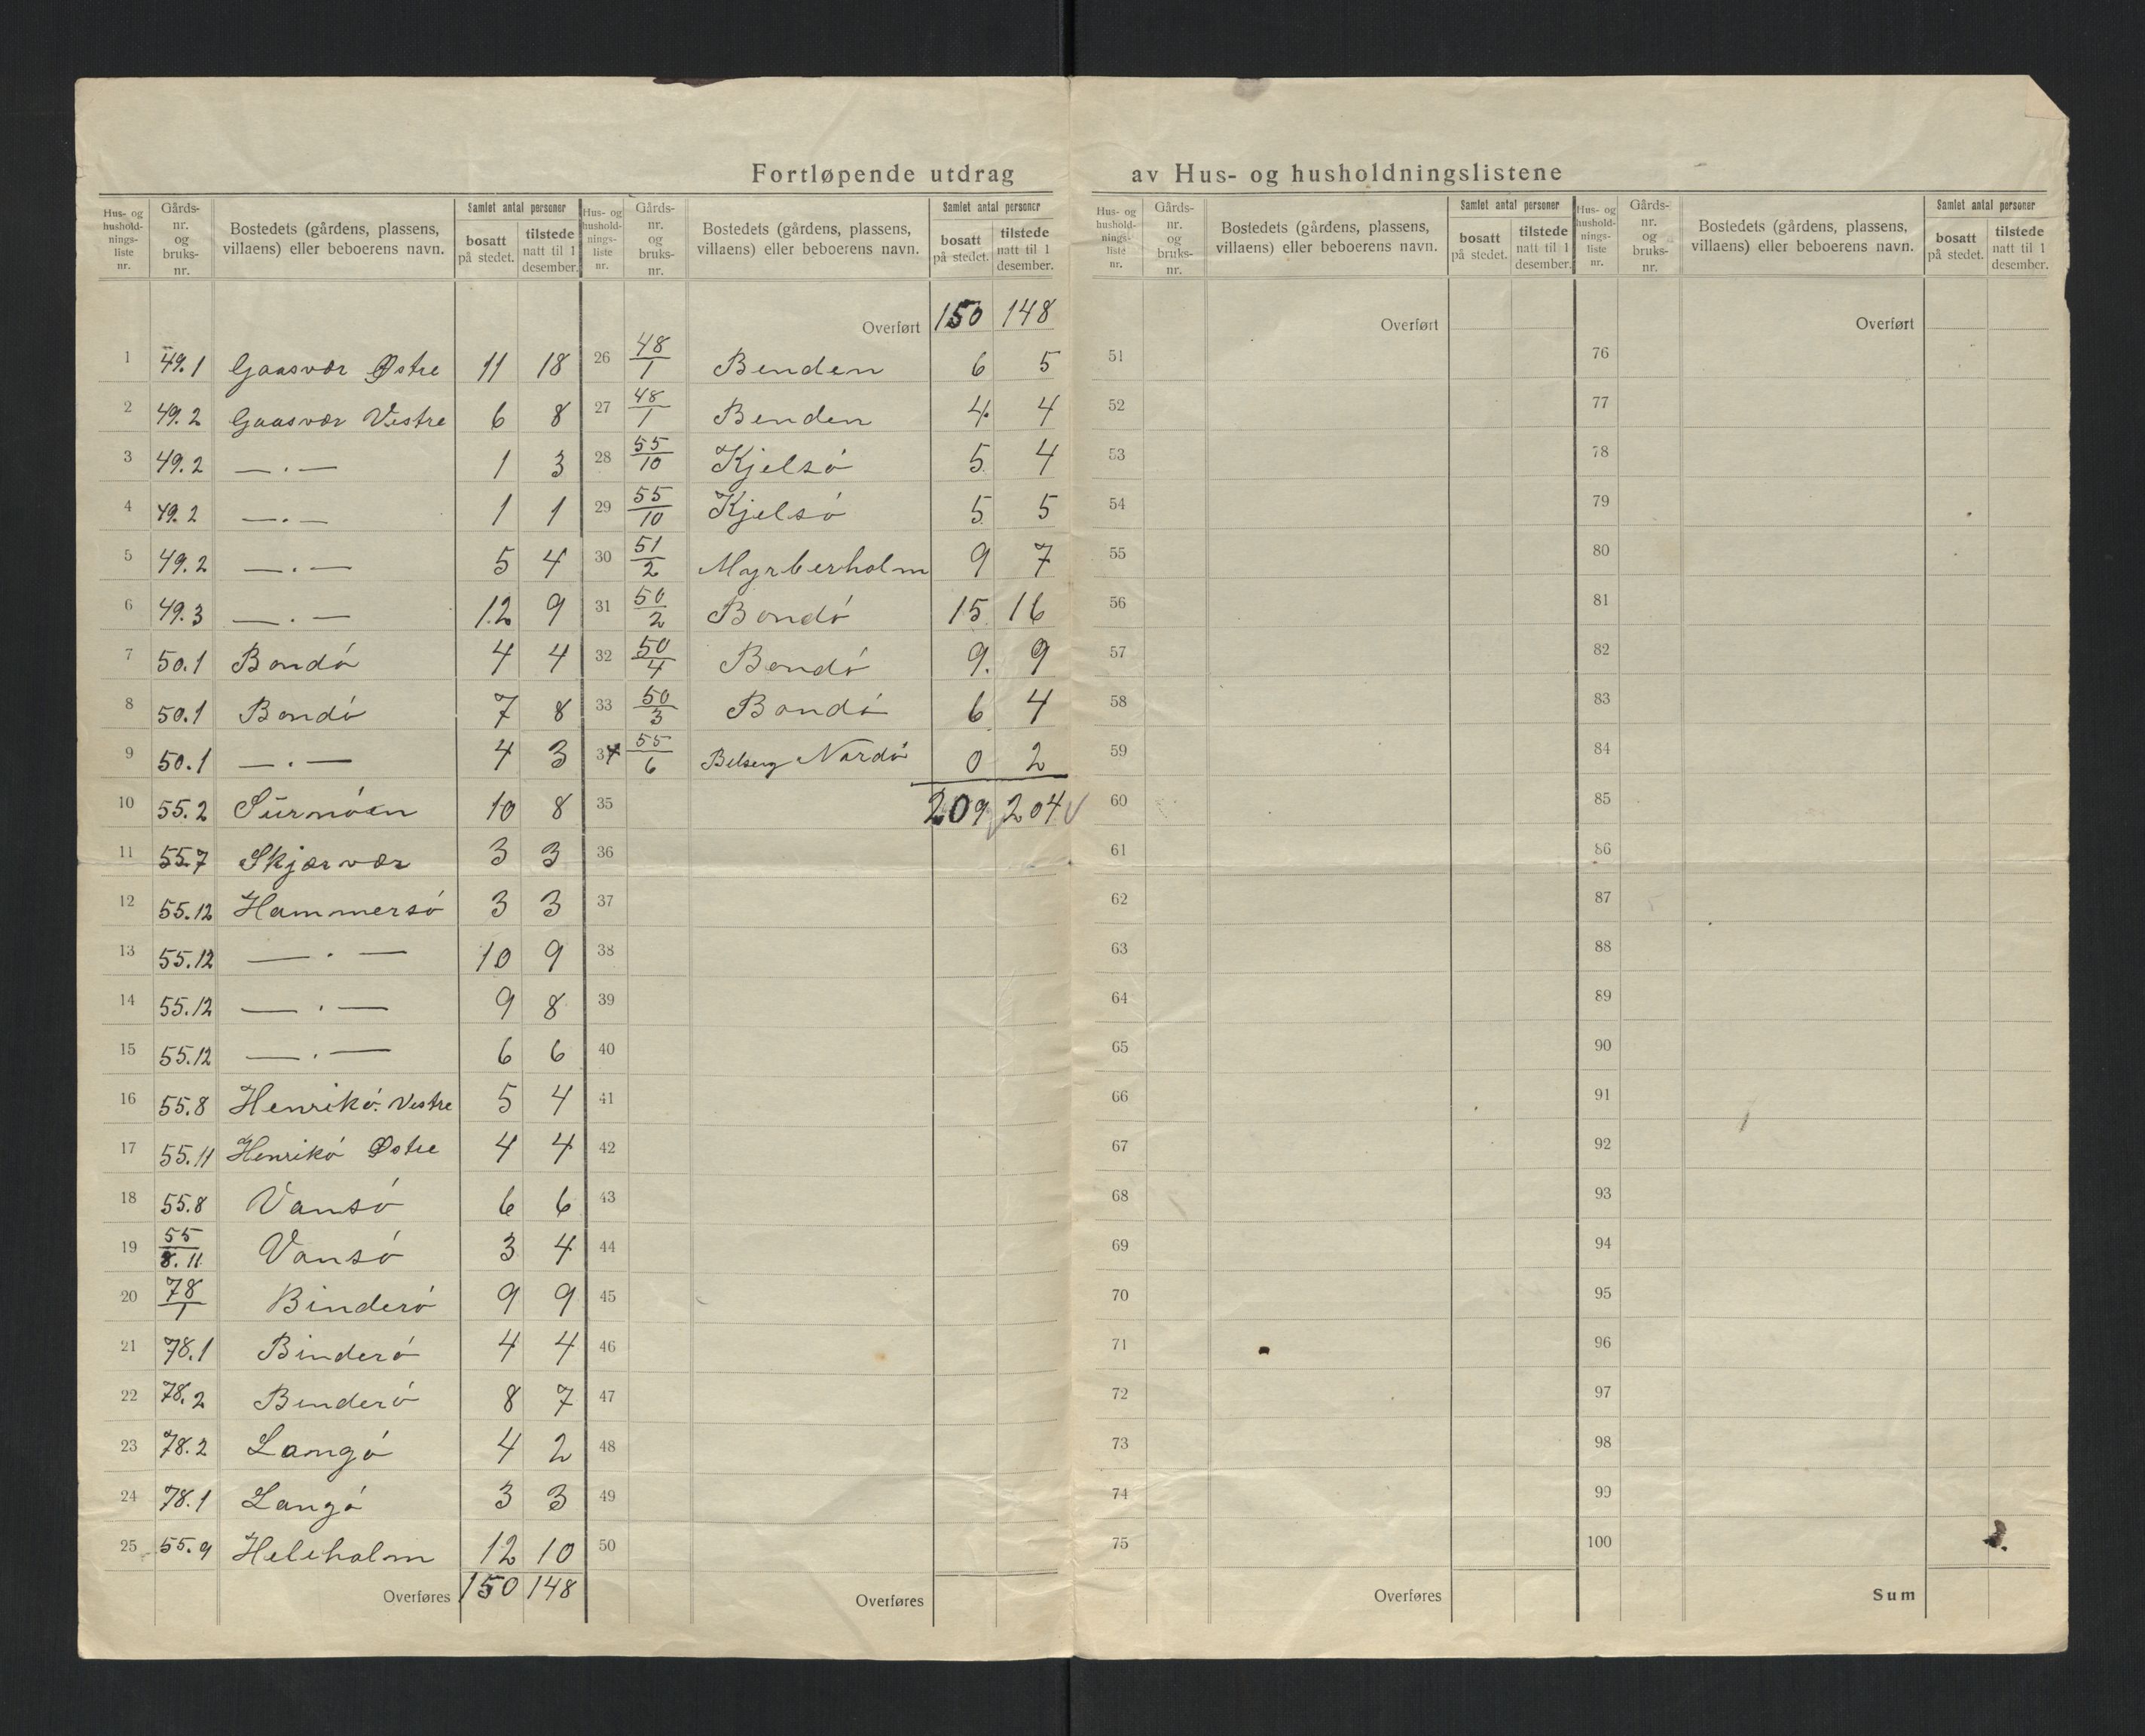 Fortløpende utdrag av Hus- og husholdningslistene
Hus- og hushold-nings-liste nr. Gårds-nr. og bruks-nr. Bostedets (gårdens, plassens, villaens) eller beboerens navn. Samlet antal personer bosatt på stedet. tilstede natt til 1 desember.
1 49.1 Gaasvær Østre 11 18
2 49.2 Gaasvær Vestre 6 8
3 49.2 —·— 1 3
4 49.2 —·— 1 1
5 49.2 —·— 5 4
6 49.3 —·— 12 9
7 50.1 Bondó 4 4
8 50.1 Bondó 7 8
9 50.1 —·— 4 3
10 55.2 Surnóen 10 8
11 55.7 Skjærvær 3 3
12 55.12 Hammersó 3 3
13 55.12 —·— 10 9
14 55.12 —·— 9 8
15 55.12 —·— 6 6
16 55.8 Henrikó. Vestre 5 4
17 55.11 Henrikó Østre 4 4
18 55.8 Vansó 6 6
19 55/8.11 Vansó 3 4
20 78/1 Binderó 9 9
21 78.1 Binderó 4 4
22 78.2 Binderó 8 7
23 78.2 Langó 4 2
24 78.1 Langó 3 3
25 55.9 Heleholm 12 10
Overføres 150 148
Hus- og hushold-nings-liste nr. Gårds-nr. og bruks-nr. Bostedets (gårdens, plassens, villaens) eller beboerens navn. Samlet antal personer bosatt på stedet. tilstede natt til 1 desember.
Overført 150 148
26 48/1 Benden 6 5
27 48/1 Benden 4 4
28 55/10 Kjelsó 5 4
29 55/10 Kjelsó 5 5
30 51/2 Myrberholm 9 7
31 50/2 Bondó 15 16
32 50/4 Bondó 9 9
33 50/3 Bondó 6 4
34 55/6 Nordó 0 2
35 209 204
36
37
38
39
40
41
42
43
44
45
46
47
48
49
50
Overføres
Hus- og hushold-nings-liste nr. Gårds-nr. og bruks-nr. Bostedets (gårdens, plassens, villaens) eller beboerens navn. Samlet antal personer bosatt på stedet. tilstede natt til 1 desember.
Overført
51
52
53
54
55
56
57
58
59
60
61
62
63
64
65
66
67
68
69
70
71
72
73
74
75
Overføres
Hus- og hushold-nings-liste nr. Gårds-nr. og bruks-nr. Bostedets (gårdens, plassens, villaens) eller beboerens navn. Samlet antal personer bosatt på stedet. tilstede natt til 1 desember.
Overført
76
77
78
79
80
81
82
83
84
85
86
87
88
89
90
91
92
93
94
95
96
97
98
99
100
Sum